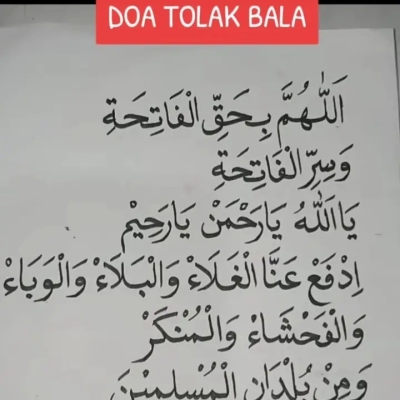 DOA TOLAK BALA
اَللّٰهُمَّ بِحَقِّ الْفَاتِحَةِ
وَسِرِّ الْفَاتِحَةِ
يَااَللّٰهُ يَارَحْمَنْ يَارَحِيْمْ
اِدْفَعْ عَنَّا الْغَلَاءْ وَالْبَلَاءْ وَالْوَبَاءْ
وَالْفَحْشَاءْ وَالْمُنْكَرْ
وَمِنْ بُلْدَانِ الْمُسْلِمِيْنَ